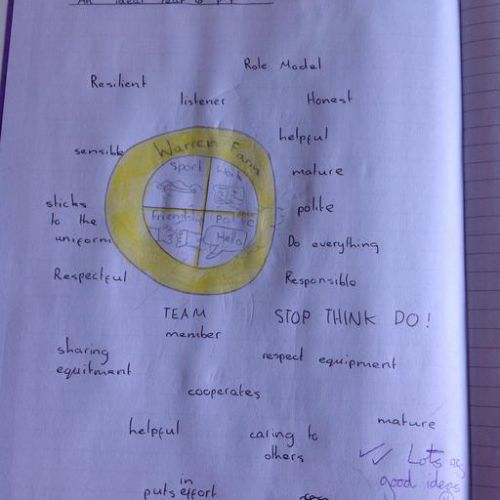 An ideal Year 6
Role Model
Resilient
listener
Honest
helpful
Warren Farm
sensible
Sport
mature
sticks
to the
uniform
polite
Friendship
Polite
Hello
Do everything
Respectful
Responsible
TEAM
member
STOP THINK DO!
sharing
equitment
respect equipment
cooperates
helpful
caring to
others
mature
✓✓ Lots of
good ideas
in
puts effort